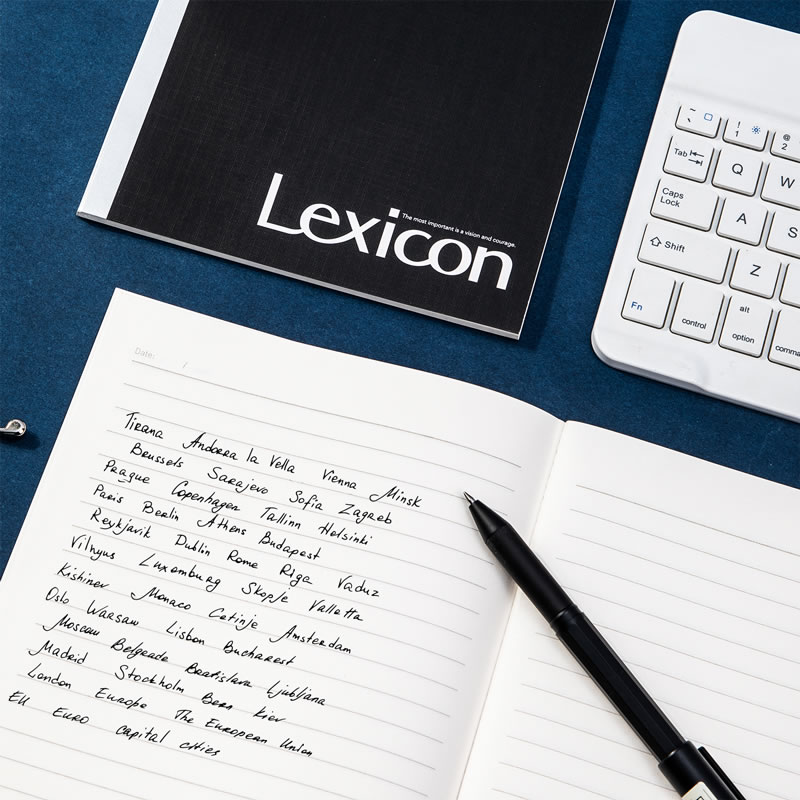 Lexicon
The most important is a vision and courage.
~
`
!
1
@
2
Tab
Q
W
Caps
Lock
A
S
Shift
Z
Fn
control
alt
option
Date:
Tirana Andorra la Vella Vienna Minsk
Brussels Sarajevo Sofia Zagreb
Prague Copenhagen Tallinn Helsinki
Paris Berlin Athens Budapest
Reykjavik Dublin Rome Riga Vaduz
Vilnyus Luxemburg Skopje Valletta
Kishinev Monaco Cetinje Amsterdam
Oslo Warsaw Lisbon Bucharest
Moscow Belgrade Bratislava Ljubljana
Madrid Stockholm Bern Kiev
London Europe The European Union
EU Euro capital cities